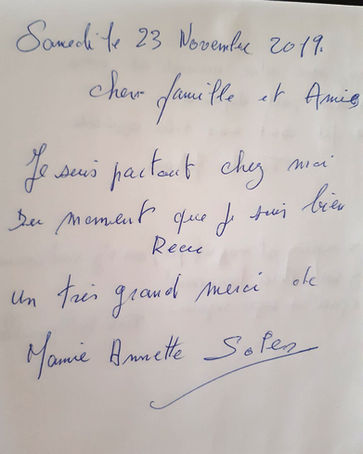 Samedi le 23 Novembre 2019.
cher famille et Amis
Je suis partout chez moi
Du moment que Je suis bien
Recu
un très grand merci de
Mamie Annette